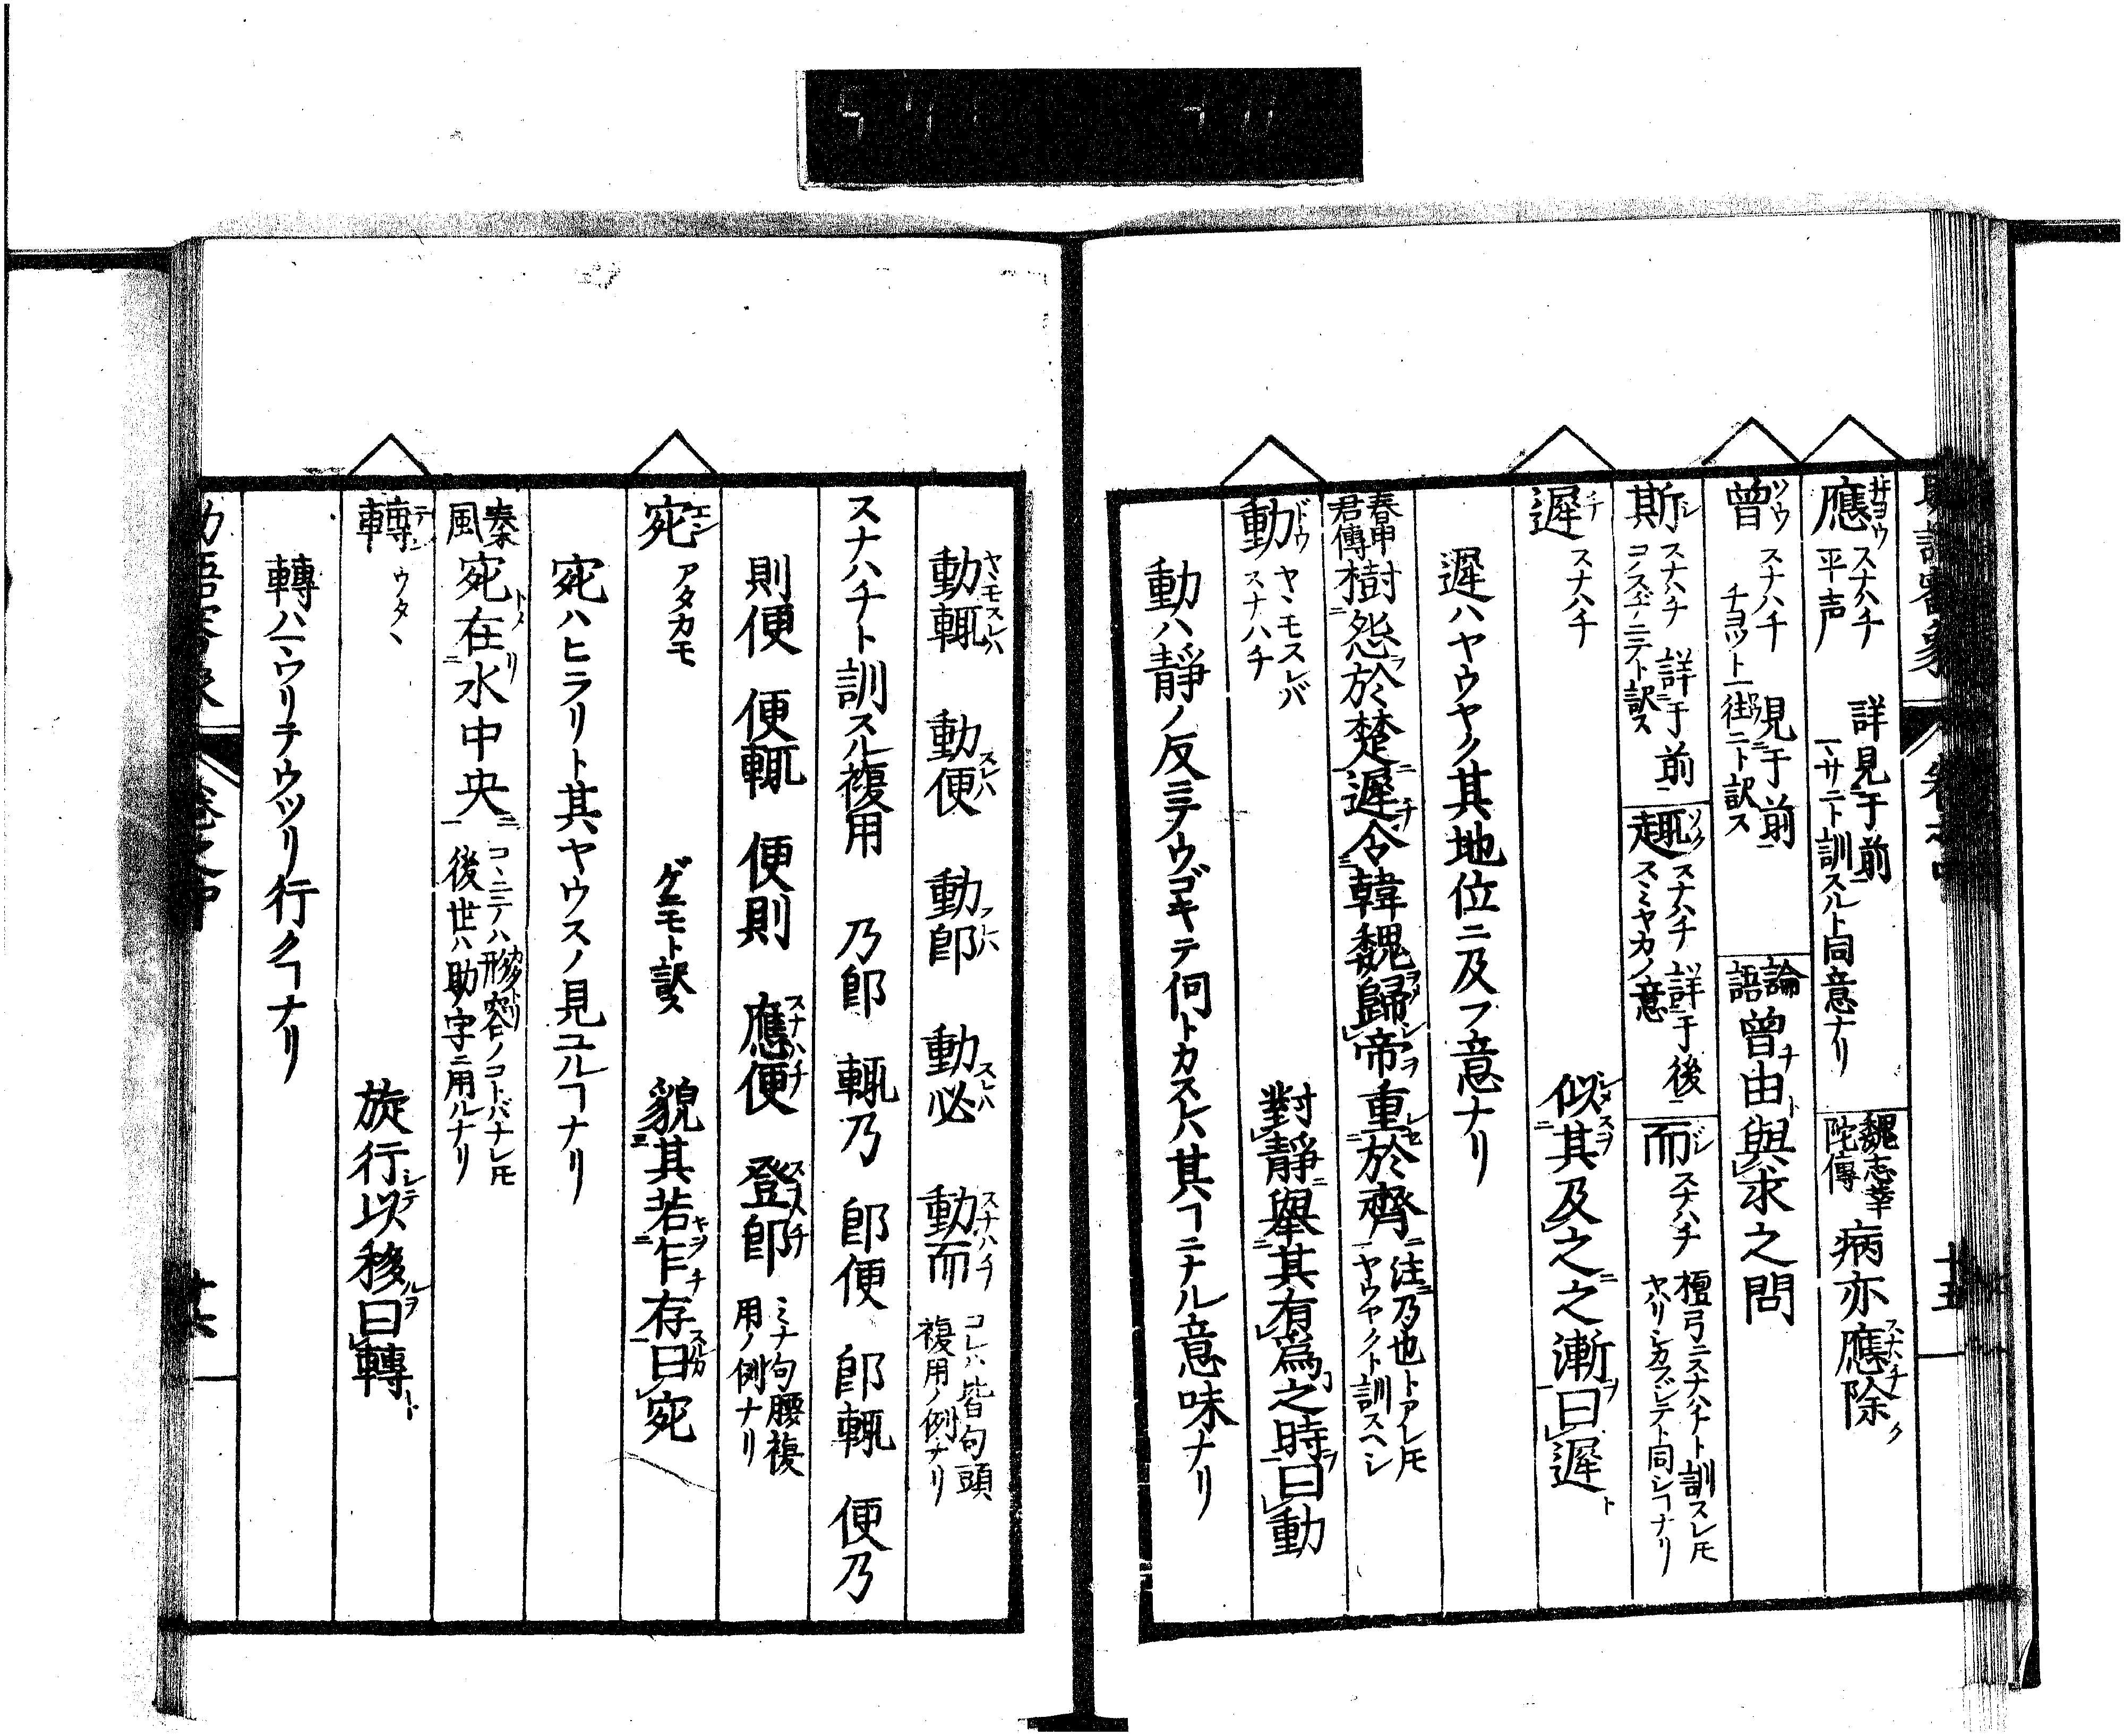 應 スナハチ 平声 詳見于前 一、サニト訓スルト同意ナリ 魏志華陀傳 病亦應除
曾 スナハチ 見于前 チヨツト一街ニト訳ス 論語 曾由與求之問
斯 スナハチ 詳于前 コノスヂニテト訳ス 趣 スナハチ 詳于後 スミヤカノ意 而 スナハチ 檀弓ニスナハチト訓スレ𪜈 ヤハリシカフシテト同シヿナリ
遲 スナハチ 似其及之之漸曰遲
遲ハヤウヤク其地位ニ及フ意ナリ
春申君傳 樹怨於楚遲令韓魏歸帝重於齊 注乃也トアレ𪜈 ヤウヤクト訓スヘシ
動 ヤヽモスレバ スナハチ 對靜舉其有爲之時曰動
動ハ靜ノ反ニテウゴキテ何トカスレハ其ヿニナル意味ナリ
動輒 動便 動卽 動必 動而 コレハ皆句頭複用ノ例ナリ
スナハチト訓スル複用 乃卽 輒乃 卽便 卽輒 便乃
則便 便輒 便則 應便 登卽 ミナ句腰複用ノ例ナリ
宛 アタカモ ゲニモト訳ス 貌其若乍存曰宛
宛ハヒラリト其ヤウスノ見ユルヿナリ
秦風 宛在水中央 コヽニテハ形容ノコトバナレ𪜈 後世ハ助字ニ用ルナリ
轉 ウタヽ 旋行以移曰轉
轉ハウリテウツリ行クヿナリ